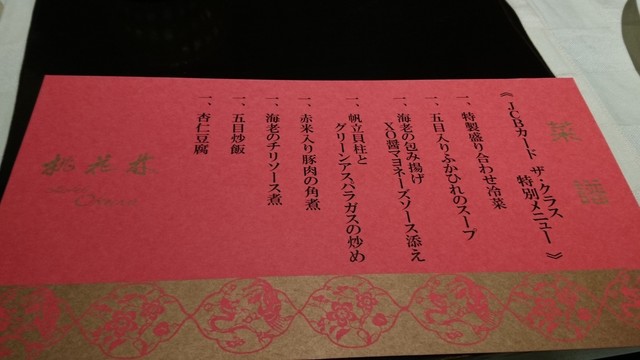 菜譜
《 JCBカード ザ・クラス
特別メニュー 》
一、特製盛り合わせ冷菜
一、五目入りふかひれのスープ
一、海老の包み揚げ
XO醤マヨネーズソース添え
一、帆立貝柱と
グリーンアスパラガスの炒め
一、赤米入り豚肉の角煮
一、海老のチリソース煮
一、五目炒飯
一、杏仁豆腐
桃花林